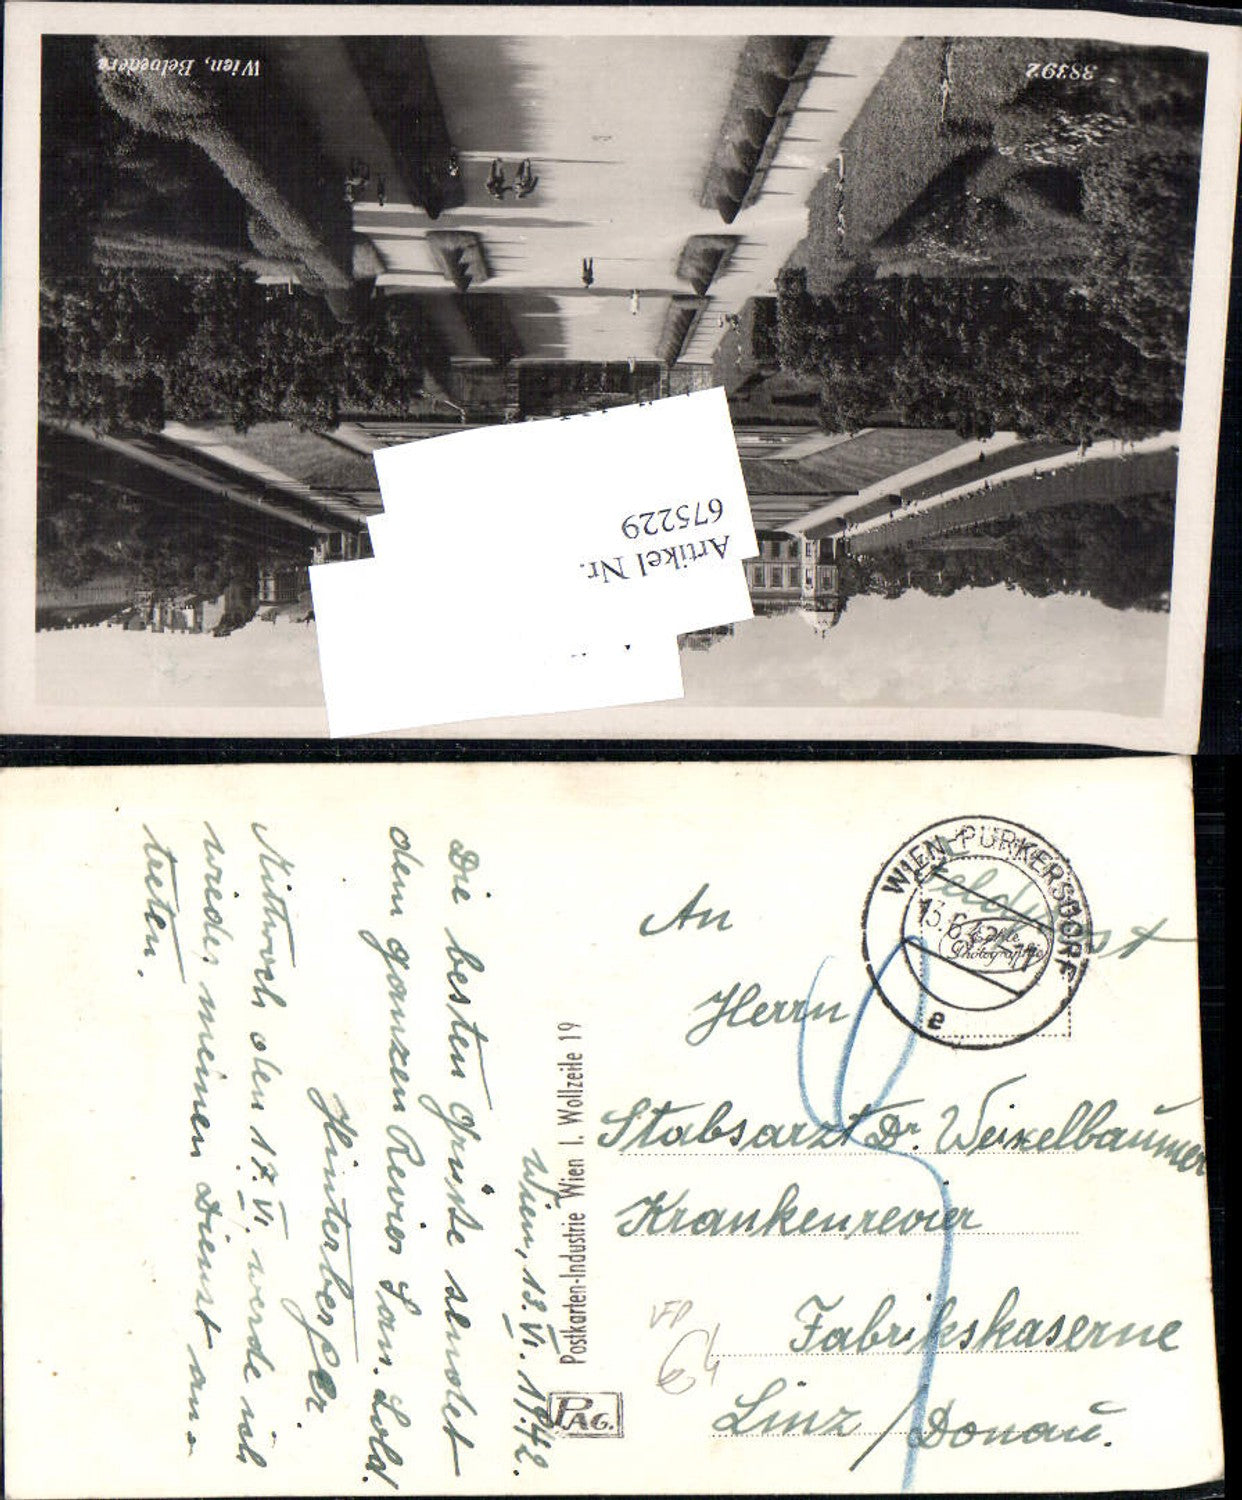 Wien, Belvedere
38392
Artikel Nr.
675229
WIEN-PURKERSDORF
13.6.42-11
e
Feldpost
Echte
Photographie
An
Herrn
Stabsarzt Dr. Weixelbaumer
Krankenrevier
Fabrikskaserne
Linz / Donau.
Postkarten-Industrie Wien I. Wollzeile 19
PAG.
Wien, 13. VI. 1942.
Die besten Grüße sendet
dem ganzen Revier San. Sold.
Hinterberger.
Mittwoch den 17. VI. werde ich
wieder meinen Dienst an-
treten.